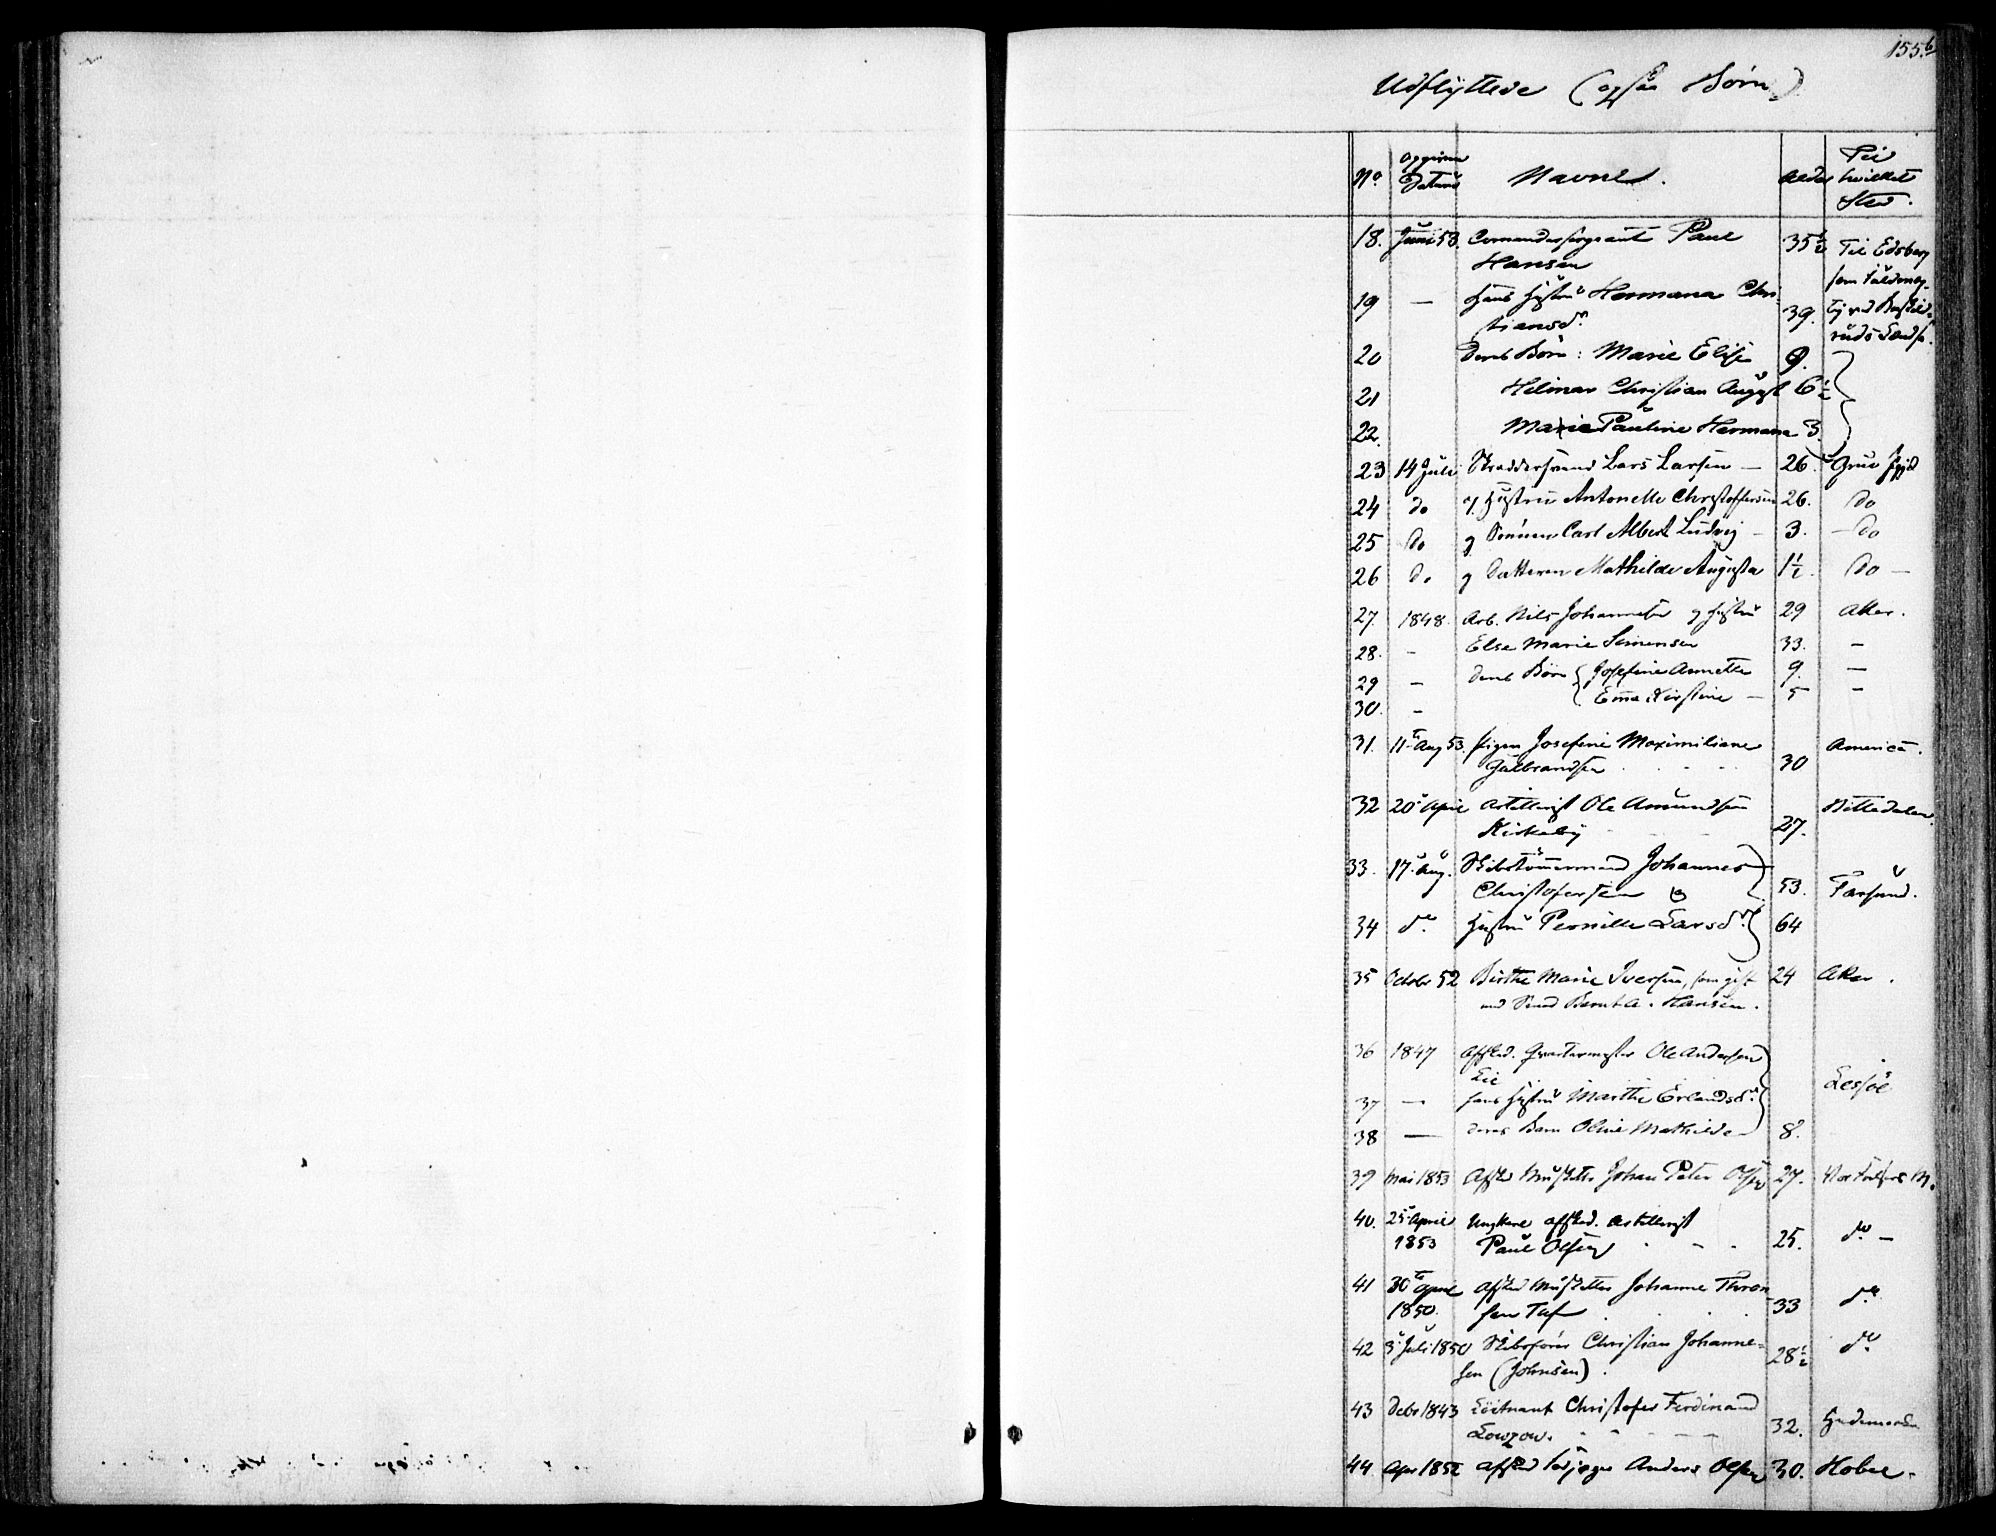 155.b
Udflyttede (ogsaa Børn)
No Opgivne Datum Navne. Alder Til hvilket Sted.
18. Juni 53. Comandeersergeant Paul 35½ Til Edsberg
Hansen som
19 — Hans Hustru Hermana Chri- 39. ved Buskeruds
tiansdr.
20 Deres Børn: Marie Elise 9.
21 Helmer Christian August 6½
22. Marie Pauline Hermana 3.
23 14 Juli Skræddersvend Lars Larsen — 26. Grue
24 do og Hustru Antonette Christoffersen 26. do
25 do og Sønnen Carl Albert Ludvig — 3. — do
26 do og Datteren Mathilde Augusta 1½. do —
27. 1848. Arb. Nils Johannesen og Hustru 29 Aker.
28. — Else Marie Simensen 33. —
29 — deres Børn { Josefine Annette 9. —
30. — Emma Kirstine — 5 —
31. 11te Aug 53. Pigen Josefine Maximiliane America.
Gulbrandsen 30
32 20 April Artillerist Ole Amundsen Nittedalen.
Kirkeby 27.
33. 17 Aug. Skibstømmermand Johannes
Christofersen og 53. Farsund.
34 do. Hustru Pernille Larsdr. 64
35 Octobr 52 Birthe Marie Iversen, som gift 24 Aker.
med Svend Bernt A. Hansen.
36 1847 Afsked. Qvartermester Ole Andersen
Lie Lesjøe
37 — hans Hustru Marthe Erlandsdr.
38 — deres Barn Oline Mathilde 8.
39 Mai 1853 Afsked Musketer Johan Peter Olsen 27. Vor Frelsers M.
40. 25 April Ungkarl afsked. Artillerist
1853 Paul Olsen 25. do. —
41 30te April Afsked Musketer Johanne Thron-
1850. sen Tuf 33 do.
42 3 Juli 1850 Skibsfører Christian Johanne- 28½ do.
sen (Johnsen).
43 Debr 1843 Løitnant Christofer Ferdinand
Lowzow. 32. Hedemarken
44. Apr 1852 Afsked Anders Olsen 30. Hobøl.